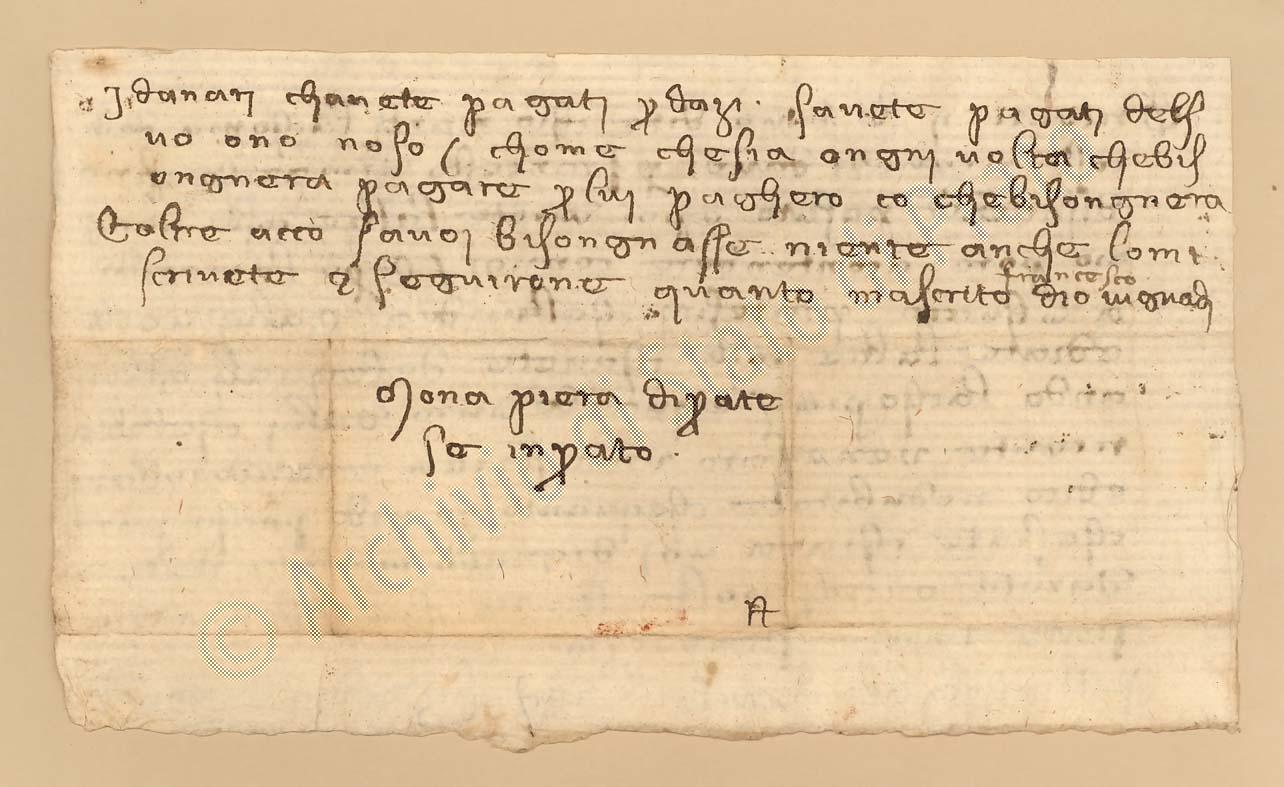 J danari chavete pagati p dazi. savete pagati delſ
uo ono noso / chome chesia ongni volta chebiſ
ongnera pagare p lui paghero co chebisongnera
Eoltre accò savoi bisongnasse niente anche lomi
scrivete & seguirone quanto mascrito dio vi guardi
francesco
Mona piera di prate
se in prato.
© Archivio di Stato di Prato